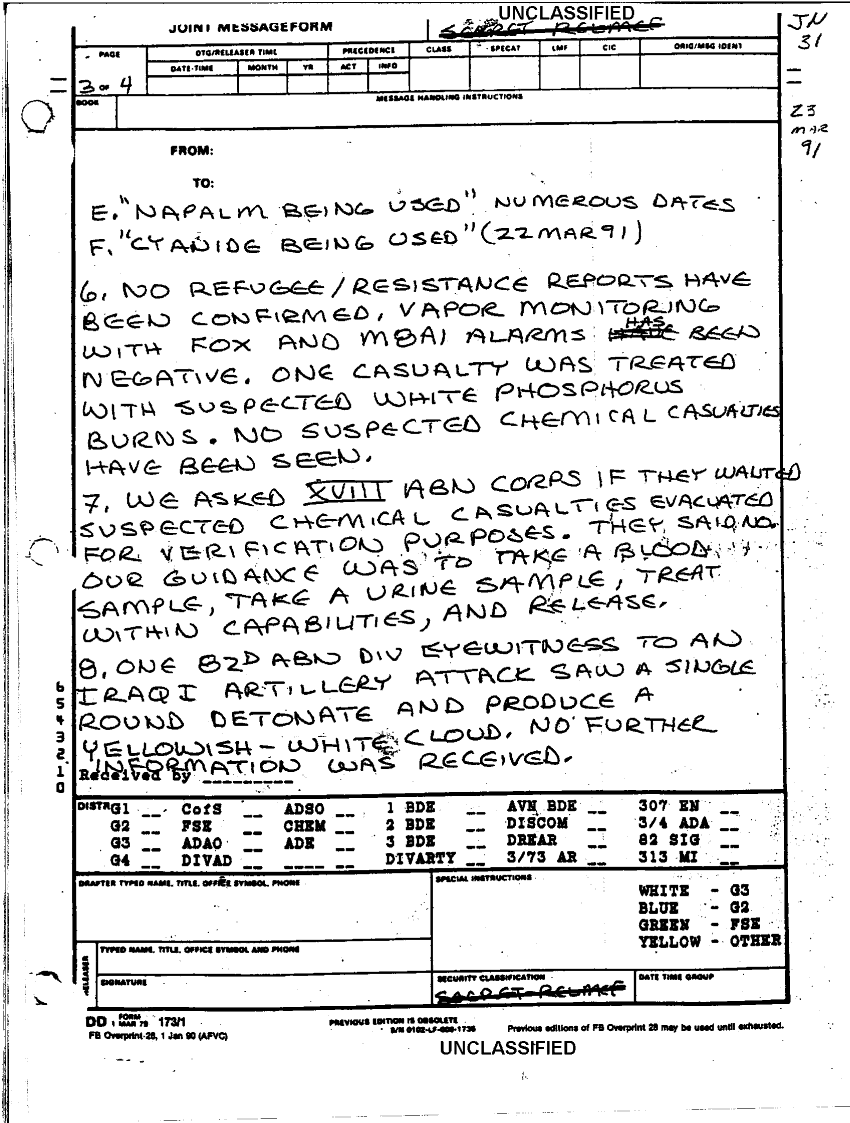 UNCLASSIFIED
JOINT MESSAGEFORM
SECRET RELMEF
JN
31
PAGE DTG/RELEASER TIME PRECEDENCE CLASS SPECAT LMF CIC ORIG/MSG IDENT
DATE-TIME MONTH YR ACT INFO
3 OF 4
BOOK MESSAGE HANDLING INSTRUCTIONS
23
MAR
91
FROM:
TO:
E. "NAPALM BEING USED" NUMEROUS DATES
F. "CYANIDE BEING USED" (22 MAR 91)
6. NO REFUGEE/RESISTANCE REPORTS HAVE
BEEN CONFIRMED. VAPOR MONITORING
WITH FOX AND M8A1 ALARMS HAS BEEN
NEGATIVE. ONE CASUALTY WAS TREATED
WITH SUSPECTED WHITE PHOSPHORUS
BURNS. NO SUSPECTED CHEMICAL CASUALTIES
HAVE BEEN SEEN.
7. WE ASKED XVIII ABN CORPS IF THEY WANTED
SUSPECTED CHEMICAL CASUALTIES EVACUATED
FOR VERIFICATION PURPOSES. THEY SAID NO.
OUR GUIDANCE WAS TO TAKE A BLOOD
SAMPLE, TAKE A URINE SAMPLE, TREAT
WITHIN CAPABILITIES, AND RELEASE.
8. ONE 82D ABN DIV EYEWITNESS TO AN
IRAQI ARTILLERY ATTACK SAW A SINGLE
ROUND DETONATE AND PRODUCE A
YELLOWISH-WHITE CLOUD. NO FURTHER
INFORMATION WAS RECEIVED.
Received by _________
6
5
4
3
2
1
0
DISTR G1 __ CofS __ ADSO __ 1 BDE __ AVN BDE __ 307 EN __
G2 __ FSE __ CHEM __ 2 BDE __ DISCOM __ 3/4 ADA __
G3 __ ADAO __ ADE __ 3 BDE __ DREAR __ 82 SIG __
G4 __ DIVAD __ ____ __ DIVARTY __ 3/73 AR __ 313 MI __
DRAFTER TYPED NAME, TITLE, OFFICE SYMBOL, PHONE SPECIAL INSTRUCTIONS
WHITE - G3
BLUE - G2
GREEN - FSE
YELLOW - OTHER
RELEASER
TYPED NAME, TITLE, OFFICE SYMBOL AND PHONE
SIGNATURE SECURITY CLASSIFICATION DATE TIME GROUP
SECRET RELMEF
DD FORM 1 MAR 79 173/1 PREVIOUS EDITION IS OBSOLETE
Previous editions of FB Overprint 28 may be used until exhausted.
FB Overprint-28, 1 Jan 90 (AFVC)
UNCLASSIFIED